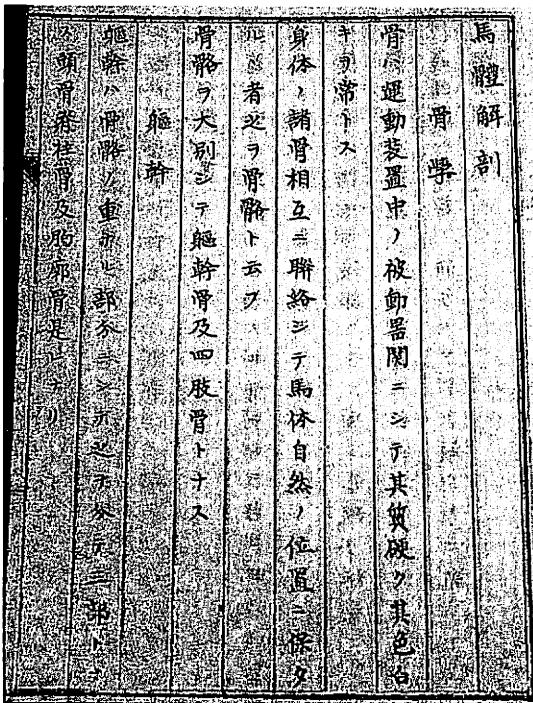 馬體解剖
骨學
骨ハ運動装置中ノ被動器関ニシテ其質硬ク其色白
キヲ常トス
身体ノ諸骨相互ニ聯絡シテ馬体自然ノ位置ニ保タ
ル者之ヲ骨骼ト云フ
骨骼ヲ大別シテ軀幹骨及四肢骨トナス
軀幹
軀幹ハ骨骼ノ重ナル部分ニシテ之ヲ分テ三部トナ
ス頭骨脊柱骨及胸廓骨是レナリ